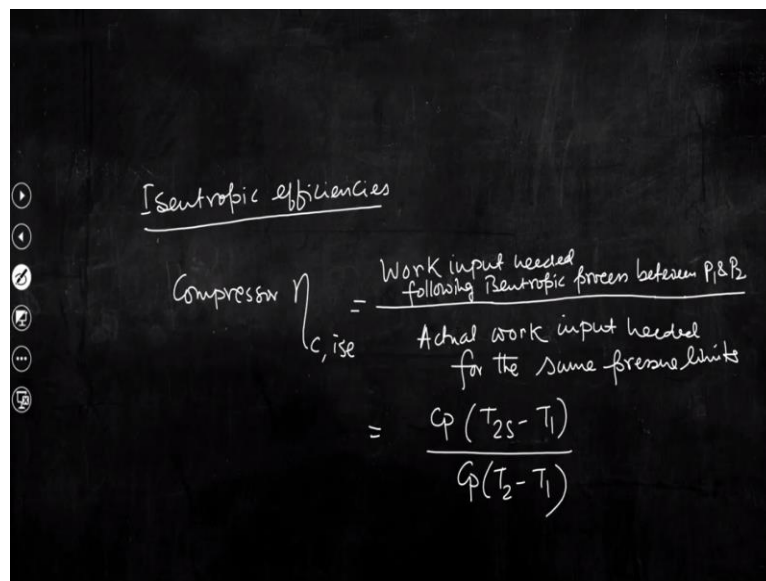 Isentropic efficiencies
Compressor η c, ise = Work input needed
following Isentropic process between P1 & P2
Actual work input needed
for the same pressure limits
= Cp (T2s - T1)
Cp (T2 - T1)